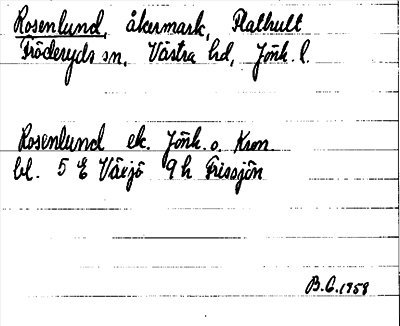 Rosenlund, åkermark, Flathult
Fröderyds sn, Västra hd, Jönk. l.
Rosenlund ek. Jönk. o. Kron.
bl. 5 E Växjö 9 h Frissjön
B.G. 1958